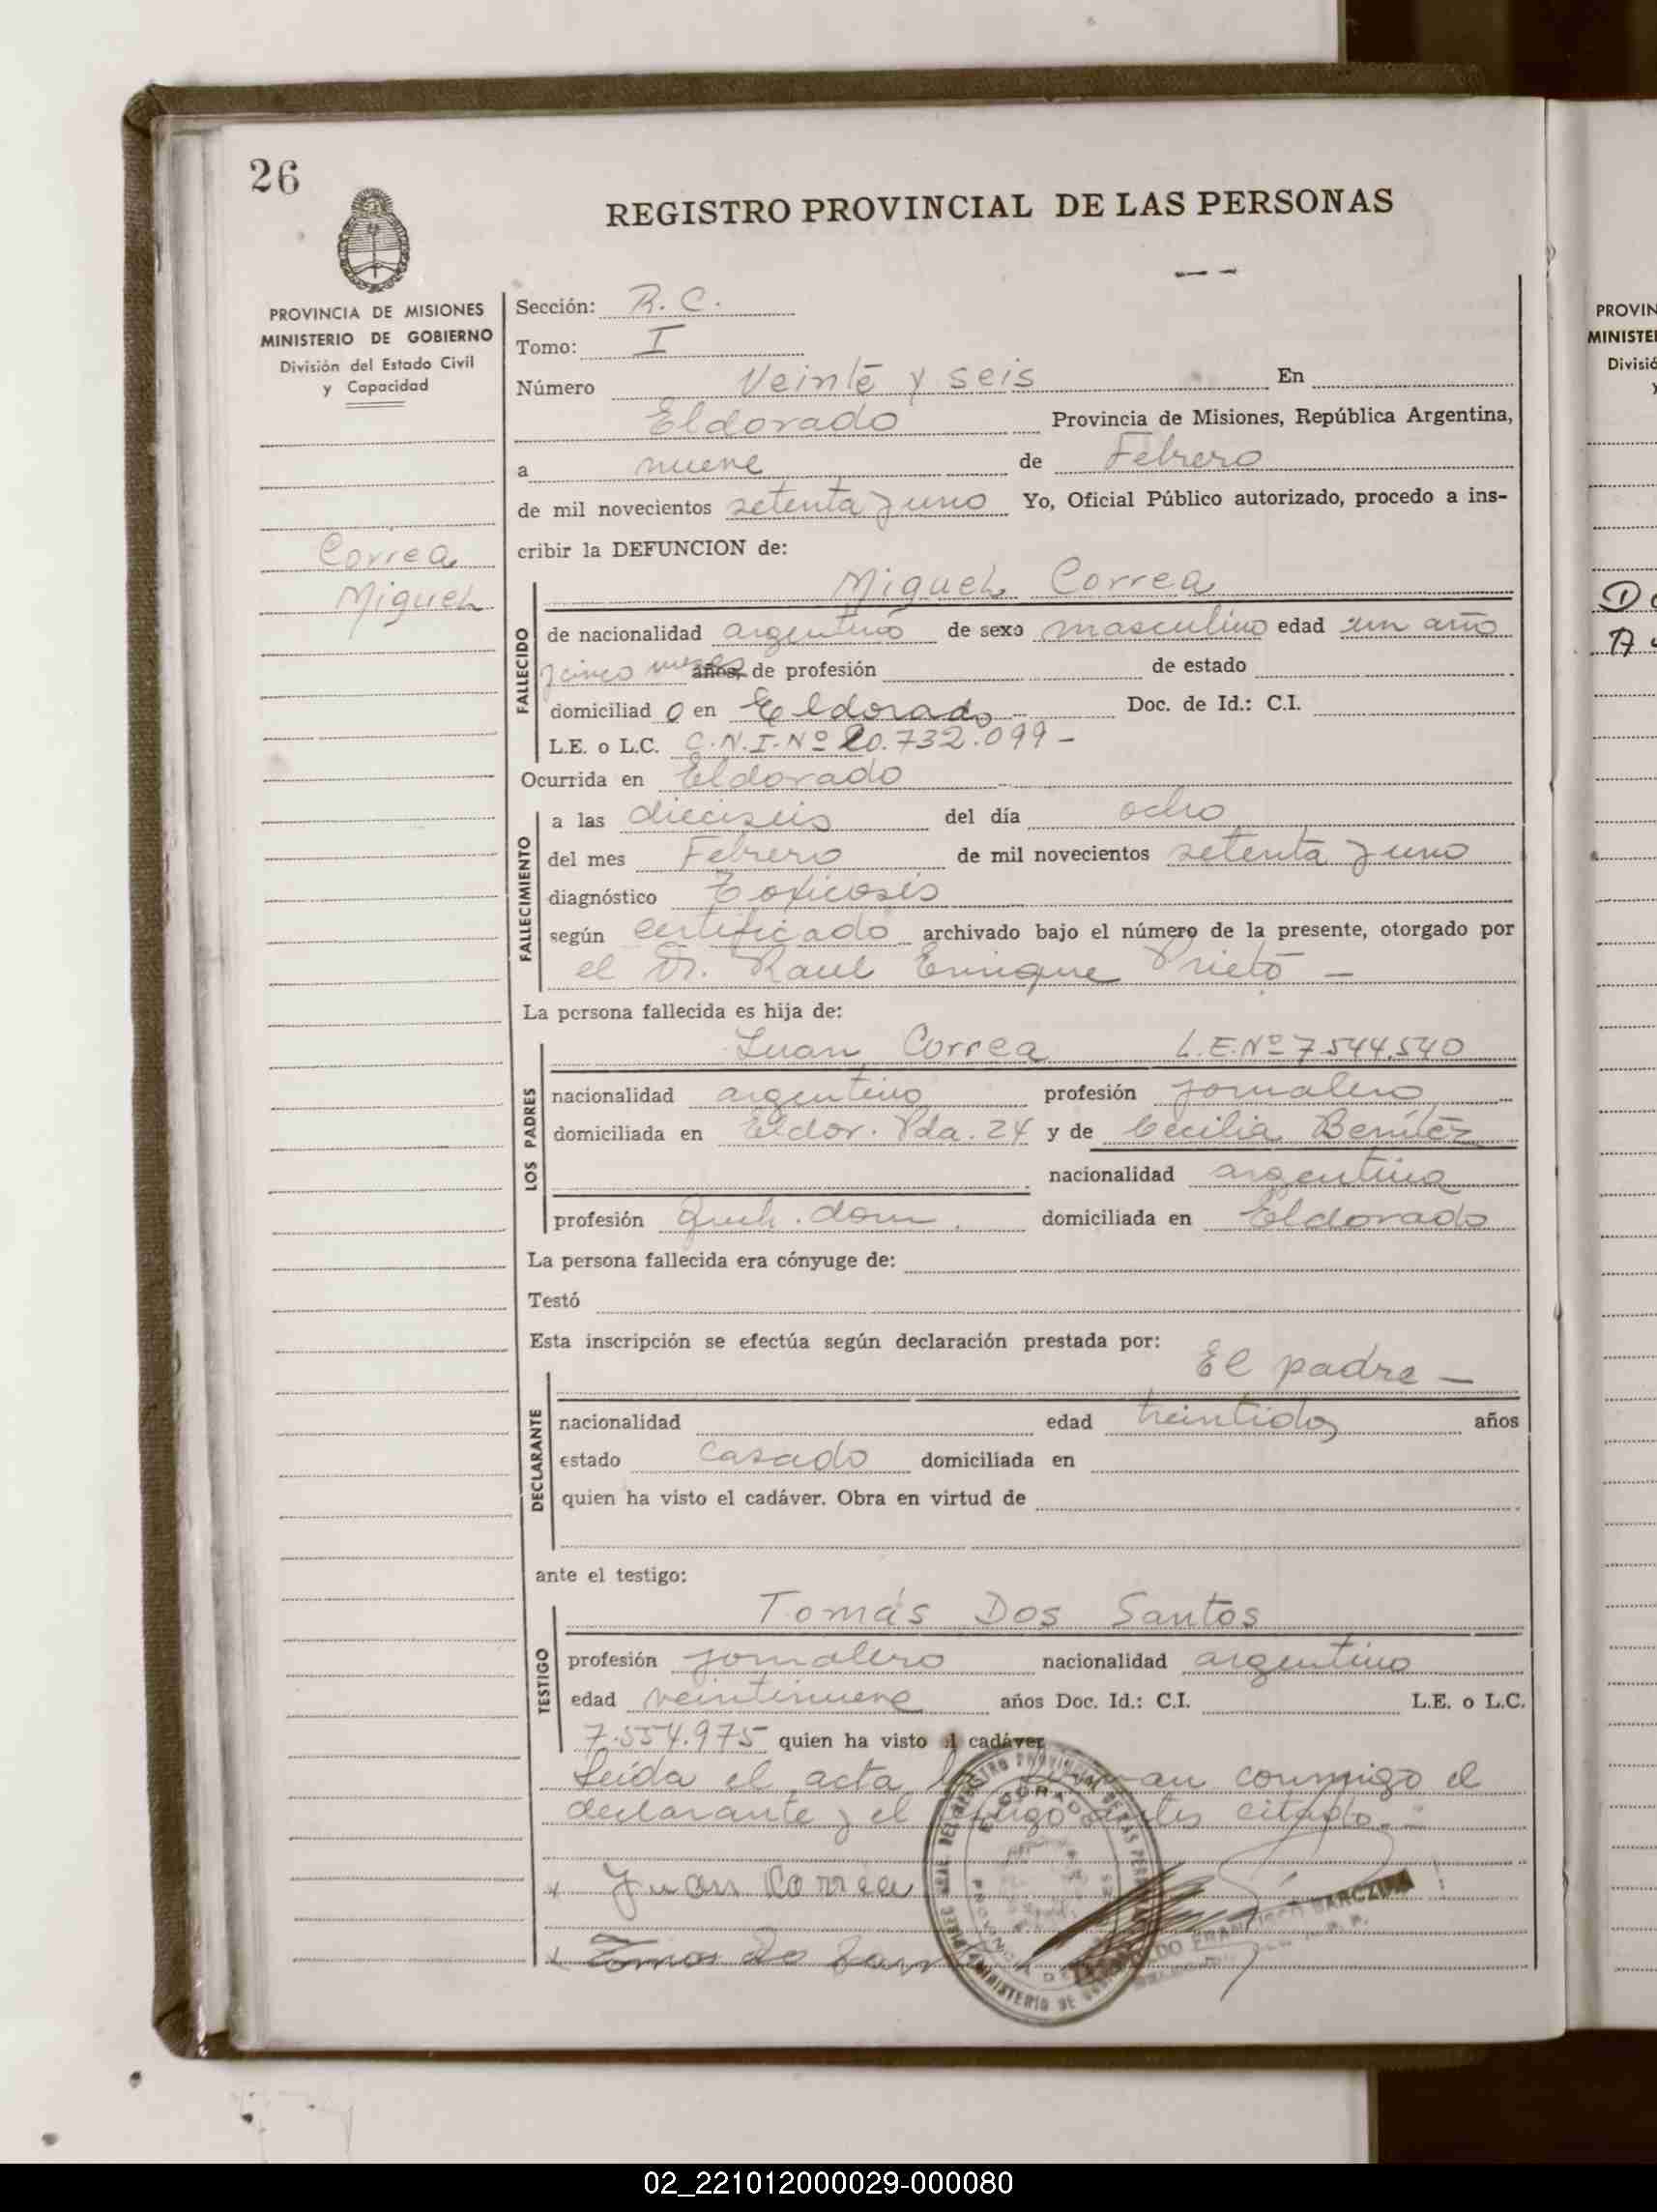 26
REGISTRO PROVINCIAL DE LAS PERSONAS
PROVINCIA DE MISIONES
MINISTERIO DE GOBIERNO
División del Estado Civil
y Capacidad
Correa
Miguel
Sección: R. C.
Tomo: I
Número Veinte y seis En
Eldorado Provincia de Misiones, República Argentina,
a nueve de Febrero
de mil novecientos setenta y uno Yo, Oficial Público autorizado, procedo a ins-
cribir la DEFUNCION de:
Miguel Correa
FALLECIDO
de nacionalidad argentino de sexo masculino edad un año
y cinco meses años, de profesión de estado
domiciliad o en Eldorado Doc. de Id.: C.I.
L.E. o L.C. C.N.I. Nº 20.732.099 -
Ocurrida en Eldorado
FALLECIMIENTO
a las dieciseis del día ocho
del mes Febrero de mil novecientos setenta y uno
diagnóstico Toxicosis
según certificado archivado bajo el número de la presente, otorgado por
el Dr. Raul Enrique Prieto -
La persona fallecida es hija de:
LOS PADRES
Juan Correa L.E. Nº 7.544.540
nacionalidad argentino profesión jornalero
domiciliada en Eldor. Pda. 24 y de Cecilia Benítez
nacionalidad argentina
profesión Queh. dom. domiciliada en Eldorado
La persona fallecida era cónyuge de:
Testó
Esta inscripción se efectúa según declaración prestada por:
El padre -
DECLARANTE
nacionalidad edad treintidos años
estado casado domiciliada en
quien ha visto el cadáver. Obra en virtud de
ante el testigo:
TESTIGO
Tomás Dos Santos
profesión jornalero nacionalidad argentino
edad veintinueve años Doc. Id.: C.I. L.E. o L.C.
7.554.975 quien ha visto el cadáver
Leída el acta la firman conmigo el
declarante y el testigo antes citado.-
x Juan Correa
x Tomas Do San
BARCZUK
PROVIN
MINISTE
Divisió
02_221012000029-000080